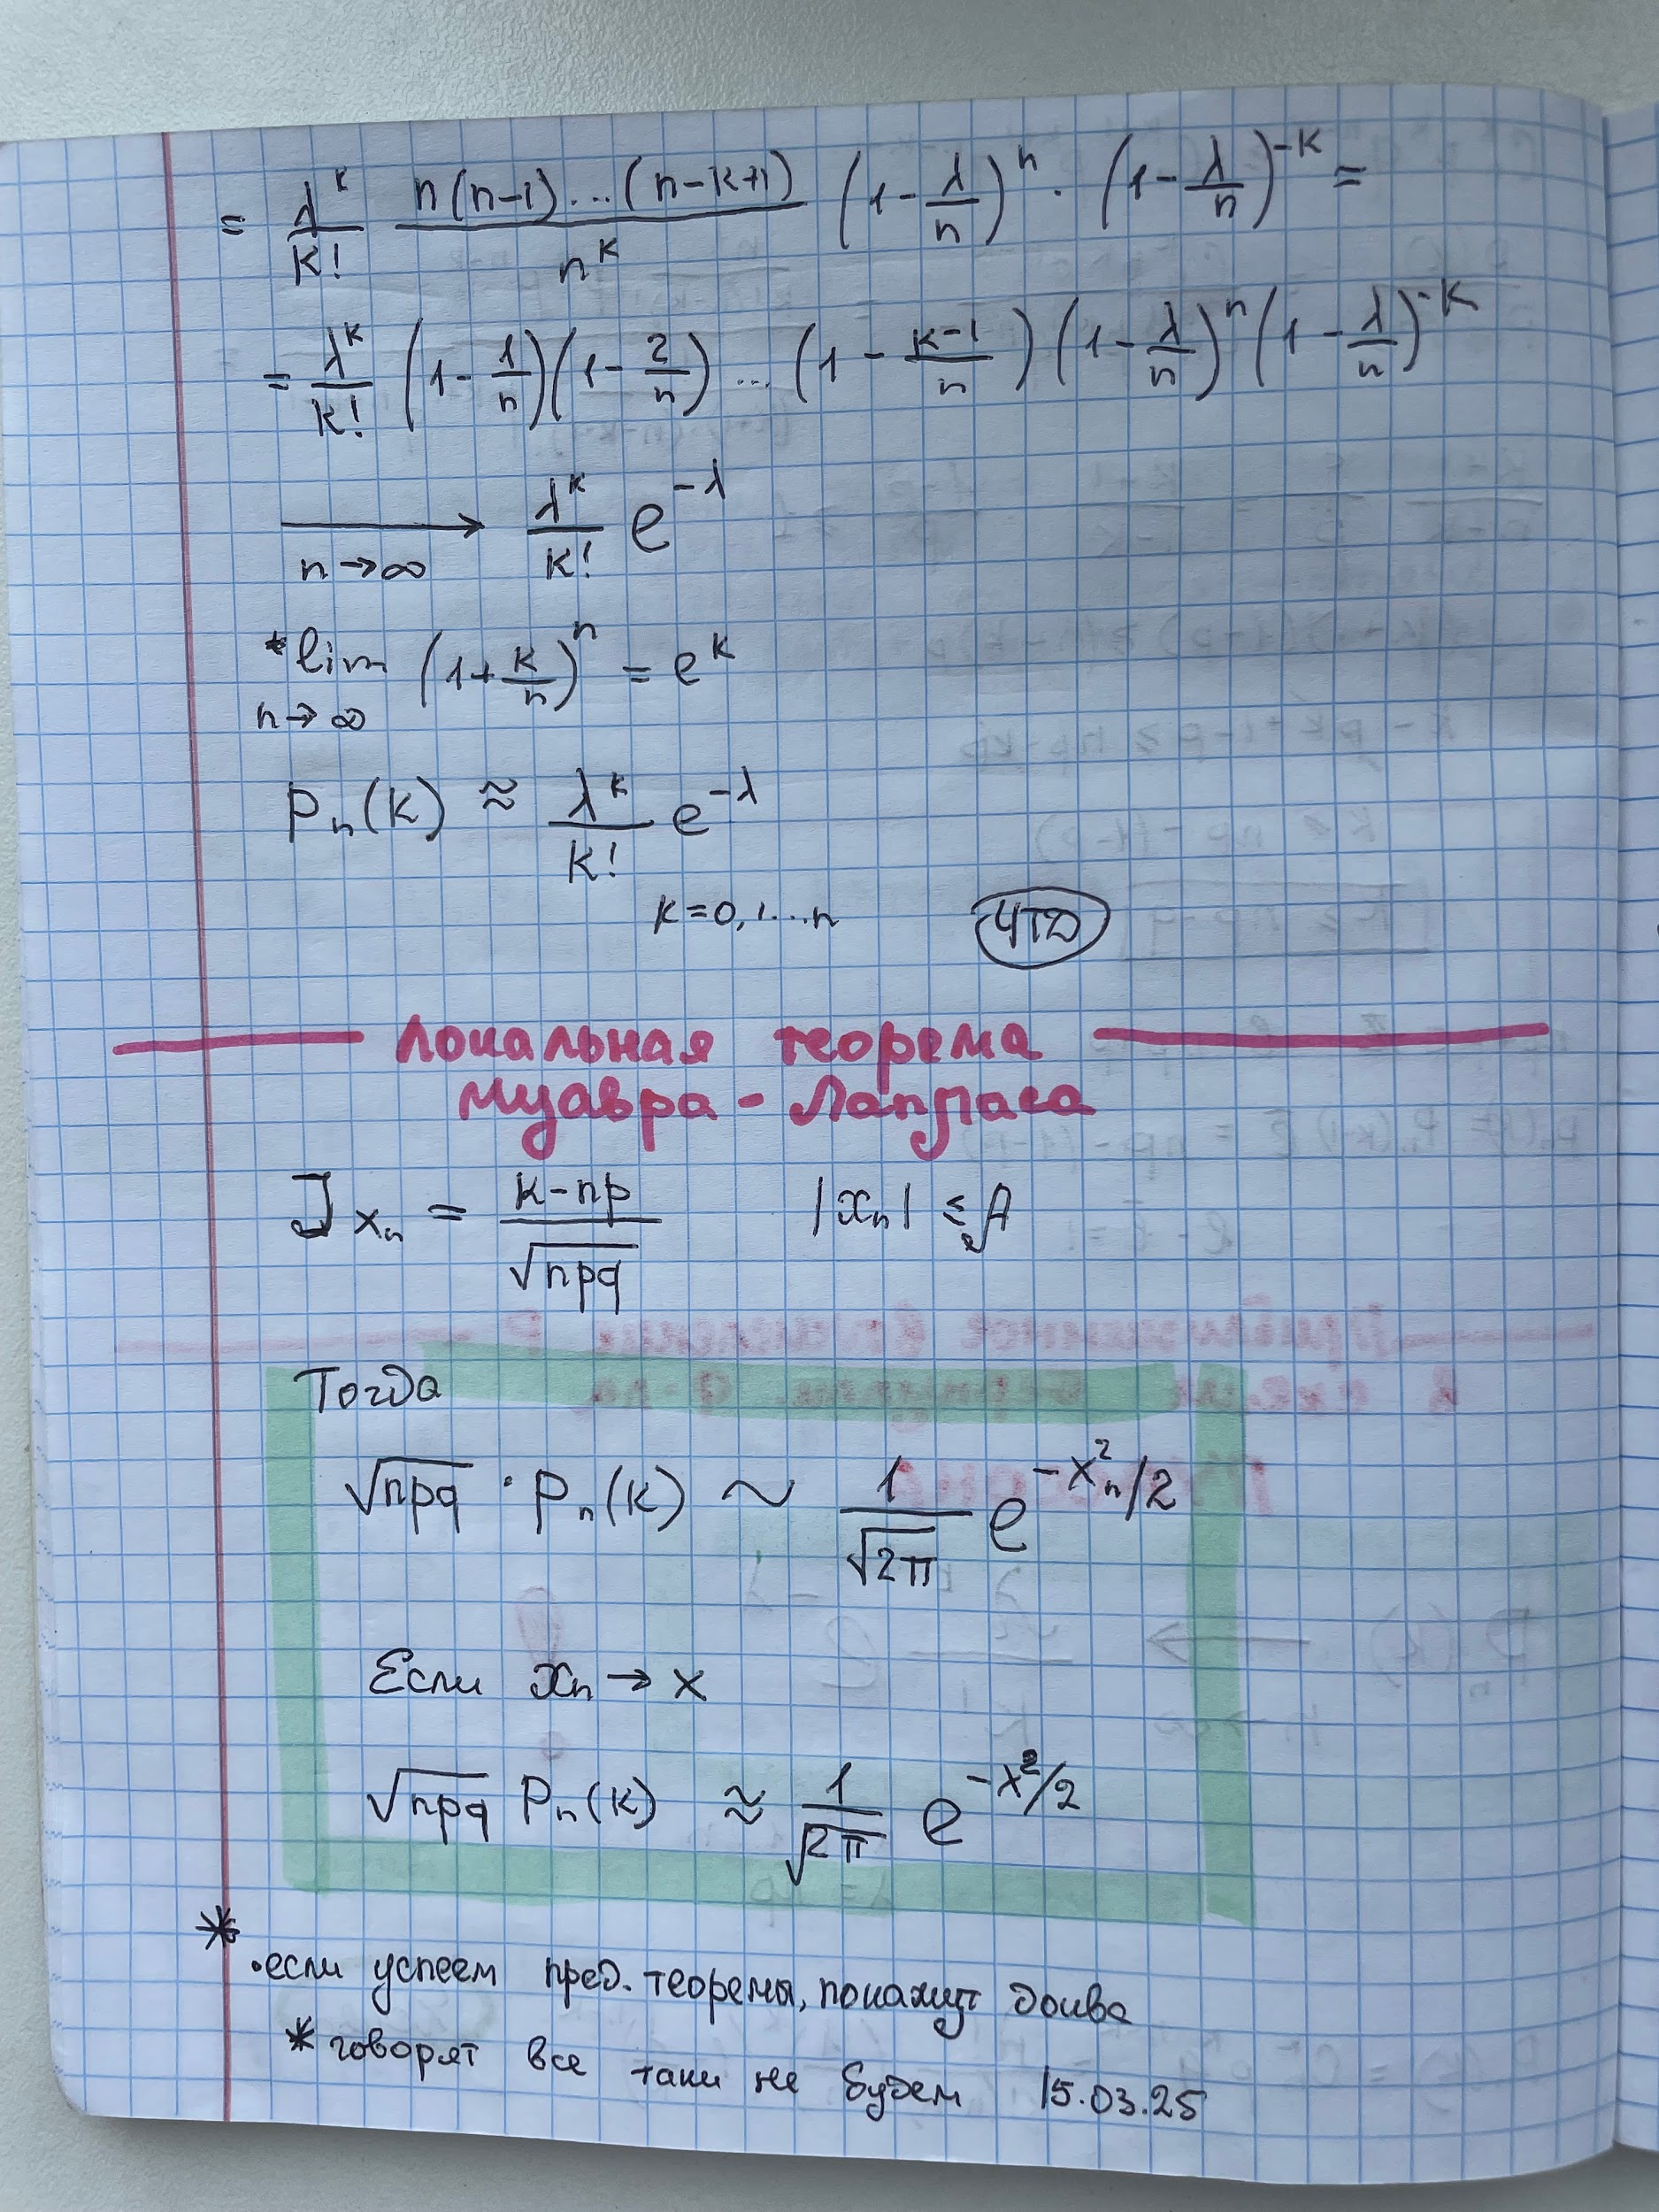 = λ^k/k! · n(n-1)...(n-k+1)/n^k (1 - λ/n)^n · (1 - λ/n)^-k =
= λ^k/k! (1 - 1/n)(1 - 2/n) ... (1 - k-1/n) (1 - λ/n)^n (1 - λ/n)^-k
⟶ n→∞ λ^k/k! e^-λ
* lim n→∞ (1 + k/n)^n = e^k
Pn(k) ≈ λ^k/k! e^-λ
k=0,1...n ЧТД
Локальная теорема
Муавра - Лапласа
] xn = k-np/√npq |xn| ≤ A
Тогда
√npq · Pn(k) ~ 1/√2π e^-xn²/2
Если xn → x
√npq Pn(k) ≈ 1/√2π e^-x²/2
*
· если успеем пред. теоремы, покажут доква
* говорят все таки не будем 15.03.25